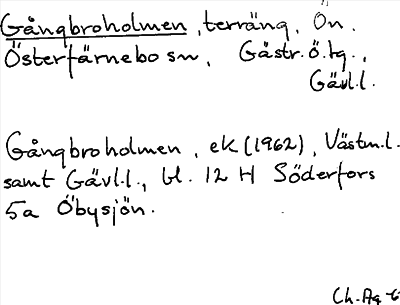 Gångbroholmen, terräng, Ön.
Österfärnebo sn, Gästr. ö. tg.,
Gävl.l.
Gångbroholmen, ek (1962), Västm.l.
samt Gävl.l., bl. 12 H Söderfors
5a Öbysjön.